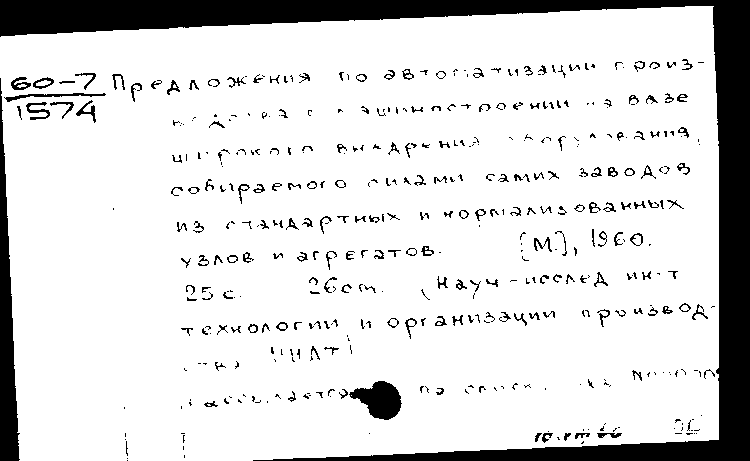 60-7
1574
Предложения по автоматизации произ-
водства в машиностроении на базе
широкого внедрения оборудования,
собираемого силами самих заводов
из стандартных и нормализованных
узлов и агрегатов. [М.], 1960.
25 с. 26 cm. (Науч-исслед ин-т
технологии и организации производ-
ства НИАТ)
Рассылается по списк.